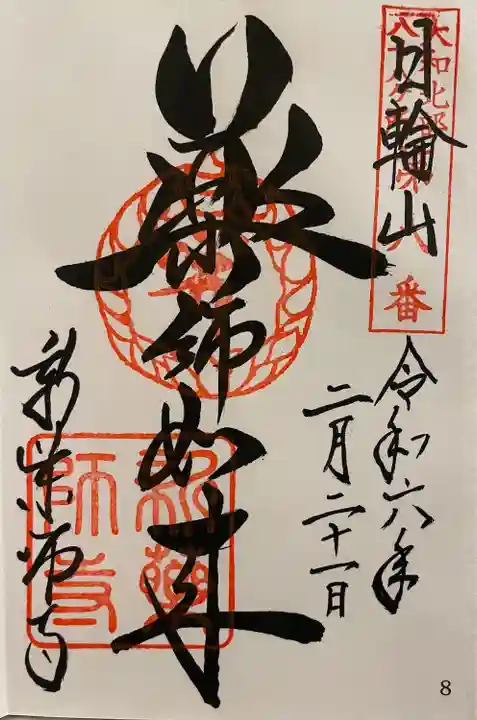 大和北部
八十八ヶ所第六番
日輪山
令和六年
二月二十一日
薬師如来
新薬師寺
新薬
師寺
8